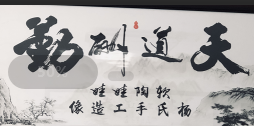 天道酬勤
软陶娃娃
杨氏手工造像